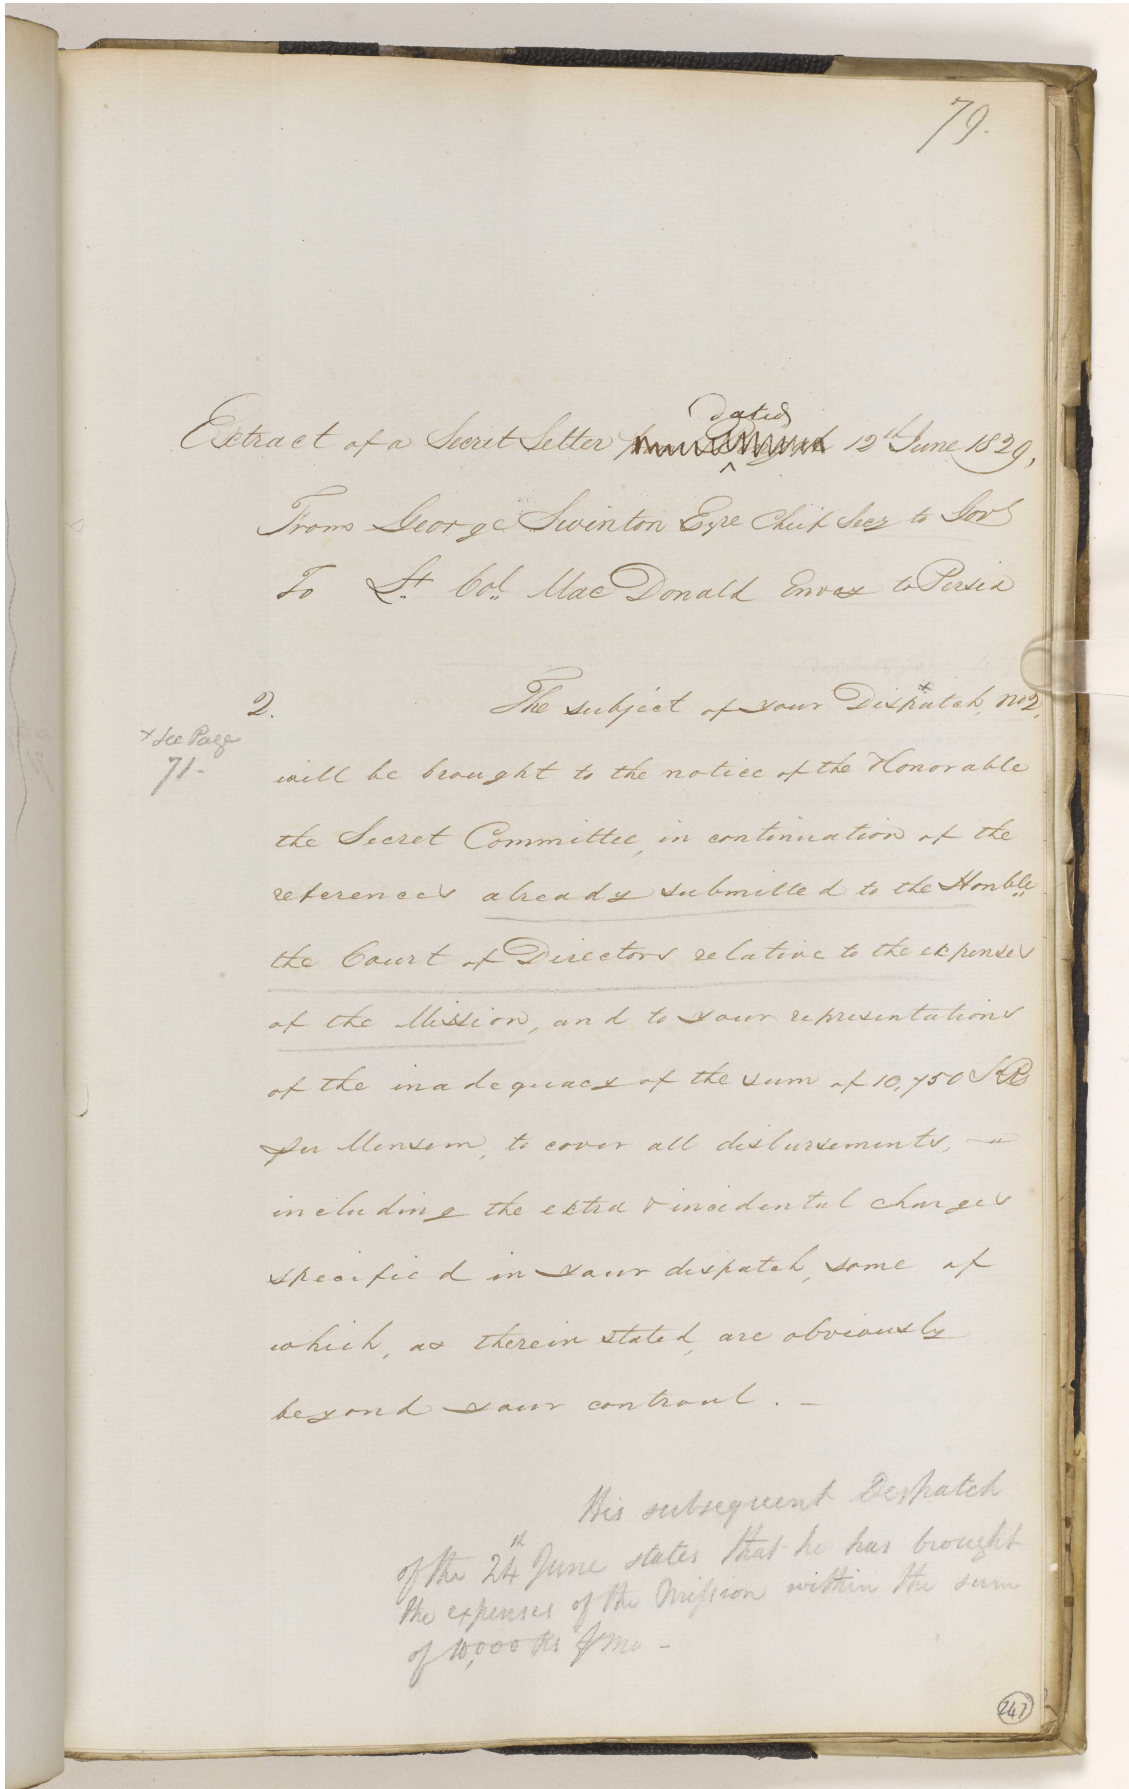 79.
Extract of a Secret Letter dated 12th June 1829,
From George Swinton Esqre Chief Secy to Govt
To Lt. Col. MacDonald Envoy to Persia
2. The subject of your Dispatch x no 2,
x See Page
71-
will be brought to the notice of the Honorable
the Secret Committee, in continuation of the
references already submitted to the Honble
the Court of Directors relative to the expenses
of the Mission, and to your representations
of the inadequacy of the sum of 10,750 SRs
per Mensem, to cover all disbursements, -
including the extra & incidental charges
specified in your dispatch, some of
which, as therein stated, are obviously
beyond your controul. -
His subsequent Despatch
of the 24th June states that he has brought
the expenses of the Mission within the sum
of 10,000 Rs P Mo -
247